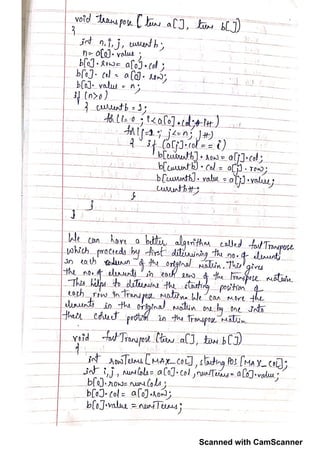 void Transpose [term a[], term b[])
{
int n, i, j, currentb ;
n = a[0]. value ;
b[0]. row = a[0]. col ;
b[0]. col = a[0]. row;
b[0]. value = n;
if (n>0)
{ currentb = 1;
for (i=0 ; i<a[0].col; i++)
for(j=1 ; j<=n; j++)
{ if (a[j].col == i)
b[currentb]. row = a[j]. col;
b[currentb]. col = a[j]. row;
b[currentb]. value = a[j].value;
currentb++;
}
}
}
We can have a better algorithm called fast Transpose
which proceeds by first determining the no. of elements
in each column of the original matrix. This gives
the no. of elements in each row of the transpose matrix.
This helps to determine the starting position of
each row in transpose matrix. We can move the
elements in the original matrix one by one into
their correct position in the Transpose Matrix.
void fast Transpose (term a[], term b[])
{
int rowTerms [MAX_COL], starting Pos [MAX_COL];
int i, j, numCols = a[0].col, numTerms = a[0].value;
b[0].row= numCols;
b[0].col = a[0].row;
b[0].value = numTerms;
Scanned with CamScanner